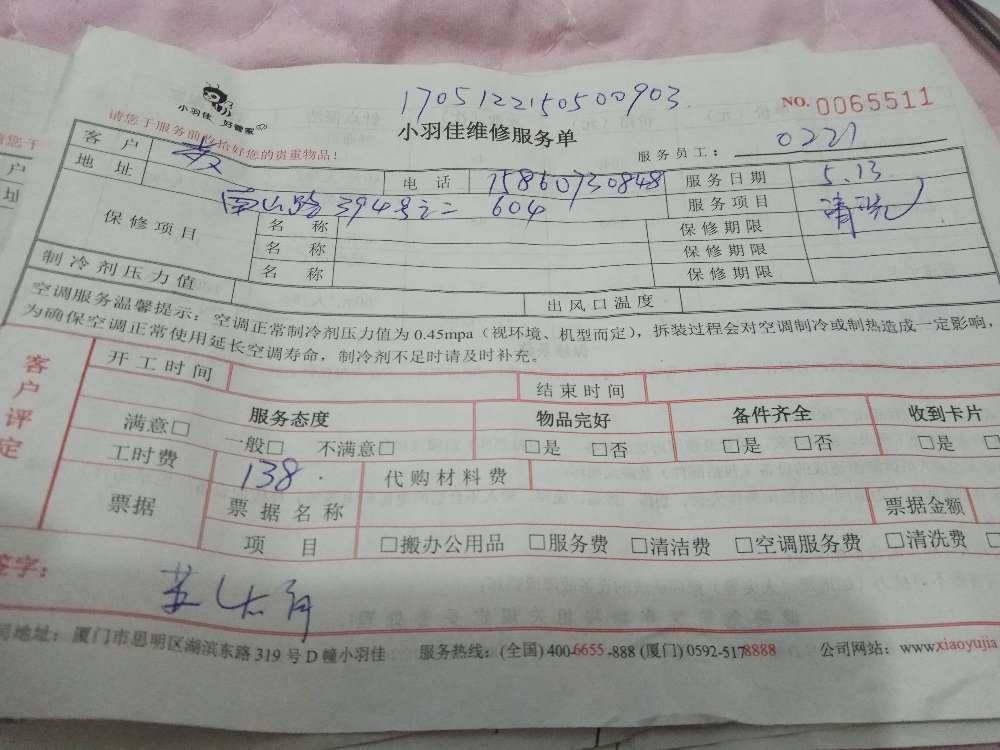 170512215050​0903
小羽佳 好管家
小羽佳维修服务单
NO. 0065511
请您于服务前收拾好您的贵重物品!
服务员工: 0221
客户 电话 15860730848 服务日期 5.13
地址 南山路394号之二 604 服务项目 清洗
保修项目 名称 保修期限
名称 保修期限
名称 保修期限
制冷剂压力值 出风口温度
空调服务温馨提示:空调正常制冷剂压力值为0.45mpa(视环境、机型而定),拆装过程会对空调制冷或制热造成一定影响,
为确保空调正常使用延长空调寿命,制冷剂不足时请及时补充。
客户评定
开工时间 结束时间
服务态度 物品完好 备件齐全 收到卡片
满意□ 一般□ 不满意□ □是 □否 □是 □否 □是
工时费 138. 代购材料费
票据 票据名称 票据金额
项目 □搬办公用品 □服务费 □清洁费 □空调服务费 □清洗费
签字:
司地址:厦门市思明区湖滨东路319号D幢小羽佳 服务热线:(全国)400-6655-888(厦门)0592-5178888 公司网站:www.xiaoyujia